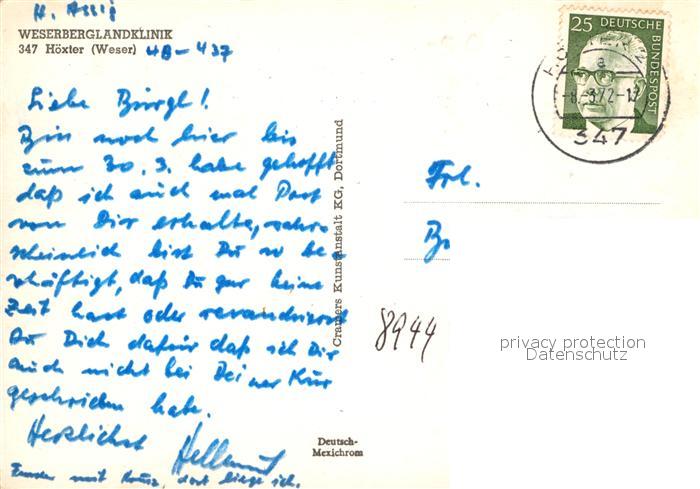 H. Assig
WESERBERGLANDKLINIK
347 Höxter (Weser) 4B-437
Liebe Burgl!
Bin noch hier bis
zum 30.3. habe gehofft
daß ich auch mal Post
von Dir erhalte, wahr
scheinlich bist Du so be
schäftigt, daß Du gar keine
Zeit hast oder revanchierst
Du Dich dafür daß ich Dir
auch nicht bei Deiner Kur
geschrieben habe.
Herzlichst Hellmut
mit Kreuz, dort liege ich.
Cramers Kunstanstalt KG, Dortmund
Deutsch-
Mexichrom
25 DEUTSCHE
BUNDESPOST
a
-8.-3.72-17
347
Frl.
8944
privacy protection
Datenschutz